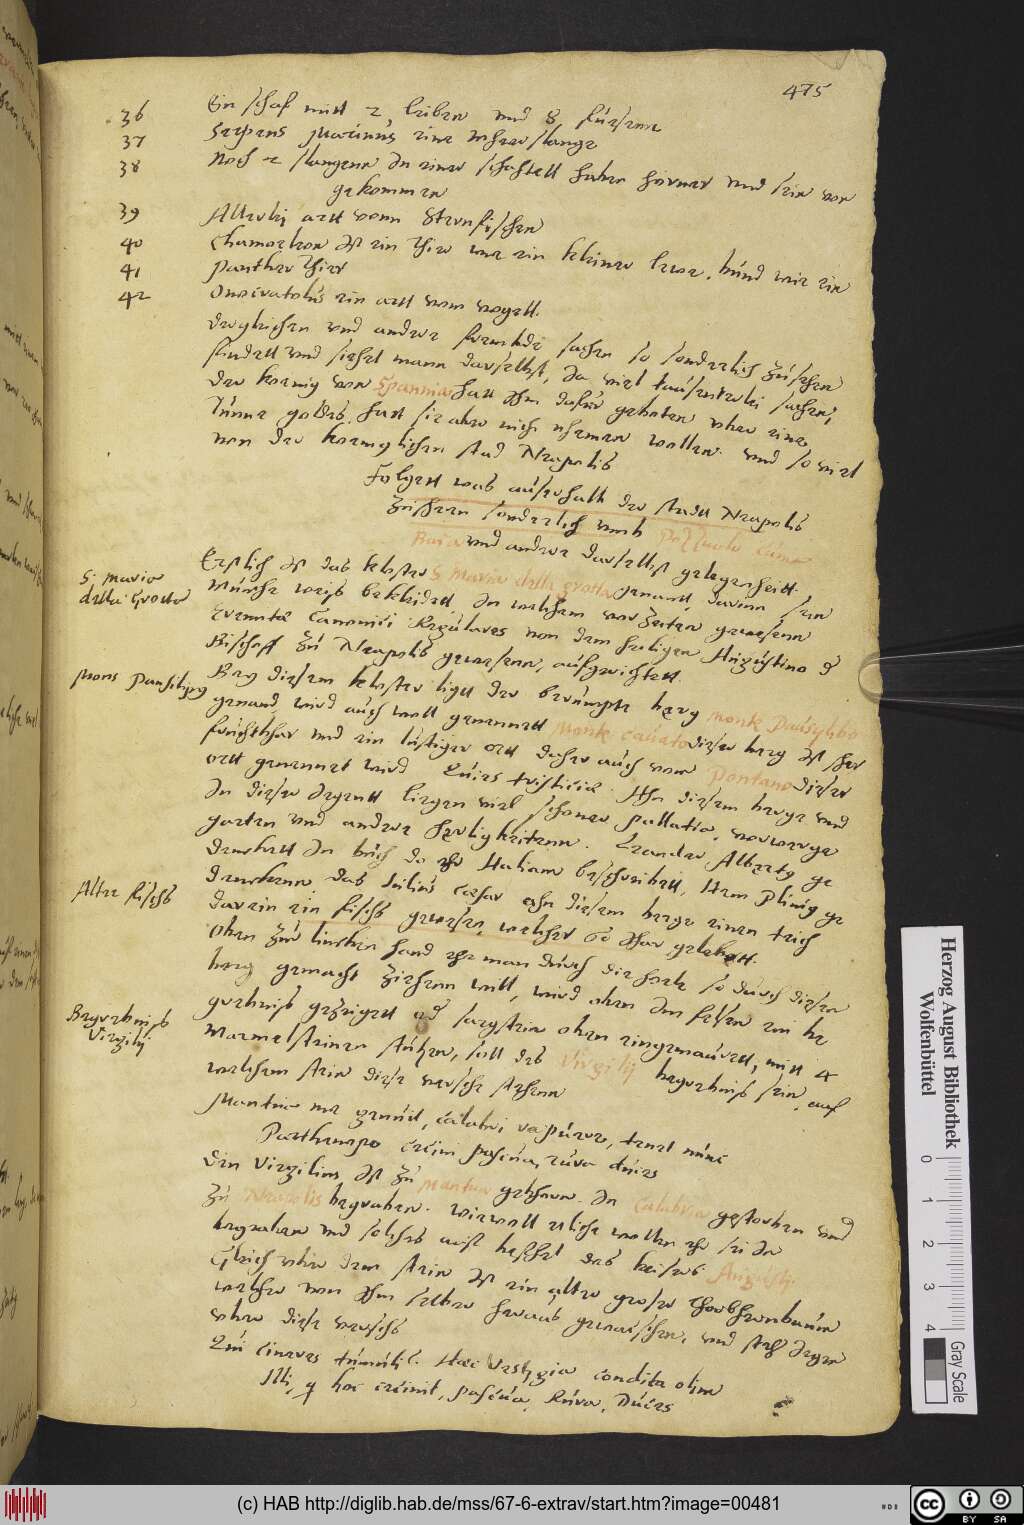 475
36 Ein schaf mitt 2 leiben und 8 fuessenn
37 Serpens Marinus eine Mehrer slange
38 Noch 2 slangenn In einer schachtell haben hörner und sein von
gekommen
39 Allerlej artt vonn Sternfischen
40 Chamaeleon Ist ein Thier wie ein kleiner Lewe, bund wie ein
41 Panther Thier
42 Onocratolus ein artt vom vogell.
Dergleichen und andere frembde sachen so sonderlich zusehen
findett und siehet mann daselbst, Da viel tausenterlei sachen,
der koenig von Spannien hatt Ihm dafür gebotten uber eine
Tunne goldes, hatt sie aber nich nhemen wollen. und so viel
von der koeniglichen stad Neapolis
Folgett was ausserhalb der stadt Neapolis
Zusehenn sonderlich umb Pozzuolo Cuma
Baia und andere daselbst gelegenheitt.
S. Maria
della Grotta
Erstlich Ist das kloster S. Maria della grotta genant, darinn sein
Münche weiss bekleidett, In welchem vor Zeiten gewesenn
Eremitae Canonici Regulares von dem heiligen Augustino d
Bischoff zu Neapolis gewesenn, auffgerichtett
Mons Pausilypy
Bey diesem kloster ligt der berümpte berg Monte Pausylipo
genand, wird auch woll genennett Monte cauato dieser berg Ist sher
fruchtbar und ein lustiger ort daher auch vom Pontano dieser
ort genennet wird Quies tristiciae. Ahn diesem berge und
In dieser Jegent liegen viel schoner Pallatia, vorwerge
garten und andere herligkeitenn. Leander Alberty ge
denckett In buch do ehr Italiam beschreibett, Item Plinig ge
Alter fischs
denckenn, das Iulius caesar ahn diesem berge einen teich
darein ein fischs gewesen, welcher 60 Jhar gelebett.
Oben zur lincken hand ehe man durch die hoele so durch diesen
berg gemacht Ziehenn will, wird oben Im felsen ein be
Begrebnus
Virgilij
grebniss gezeigett als sargstein oben eingemauertt, mitt 4
Marmelsteinen stützen, soll des Virgilij begrebniss sein, auf
welchem stein diese versche stehenn
Mantua me genuit, calabri rapuere, tenet nunc
Parthenope cecini pascua, rura duces
Den Virgilius Ist zu Mantua gebhorn. In Calabria gestorben und
zu Neapolis begraben. wiewoll etliche wollen ehr sei da
begraben und solches auss befhel des keisers Augusti.
Gleich uber dem stein Ist ein alter groser Lhorbherenbaum
welcher von Ihm selber heraus gewachschen, und steh Jegen
uber diese verschs
Qui cineres tumuli? Haec Vestygia condita olim
Illi, q hoc cecinit, pascua, Rura, Duces
Herzog August Bibliothek
Wolfenbüttel
0 1 2 3 4
Gray Scale
(c) HAB http://diglib.hab.de/mss/67-6-extrav/start.htm?image=00481
cc BY SA